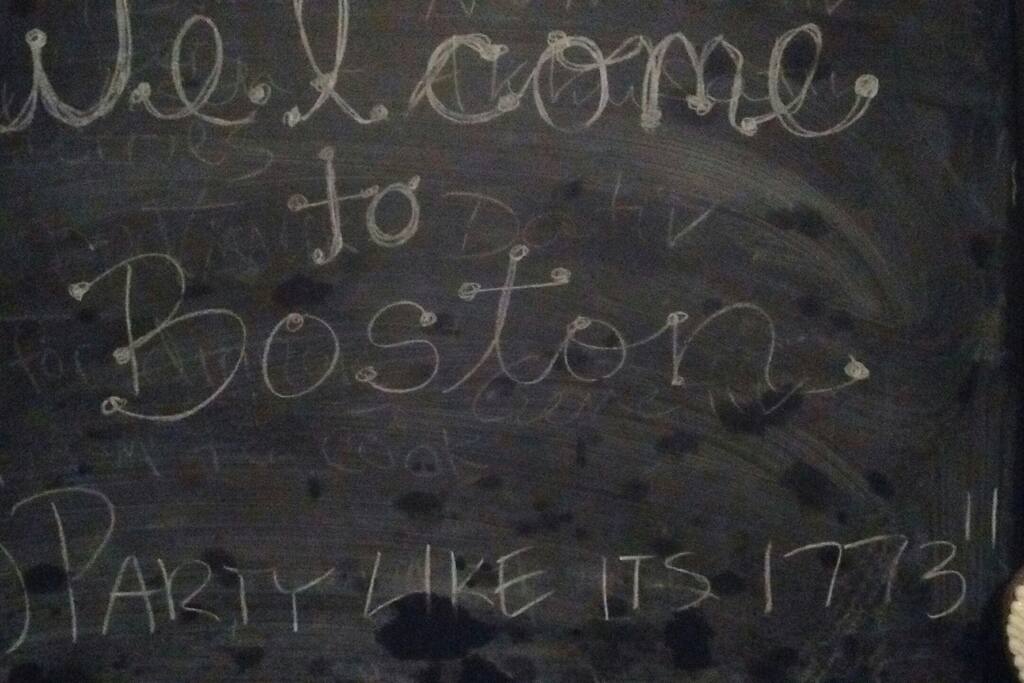 Welcome
to
Boston
PARTY LIKE ITS 1773"